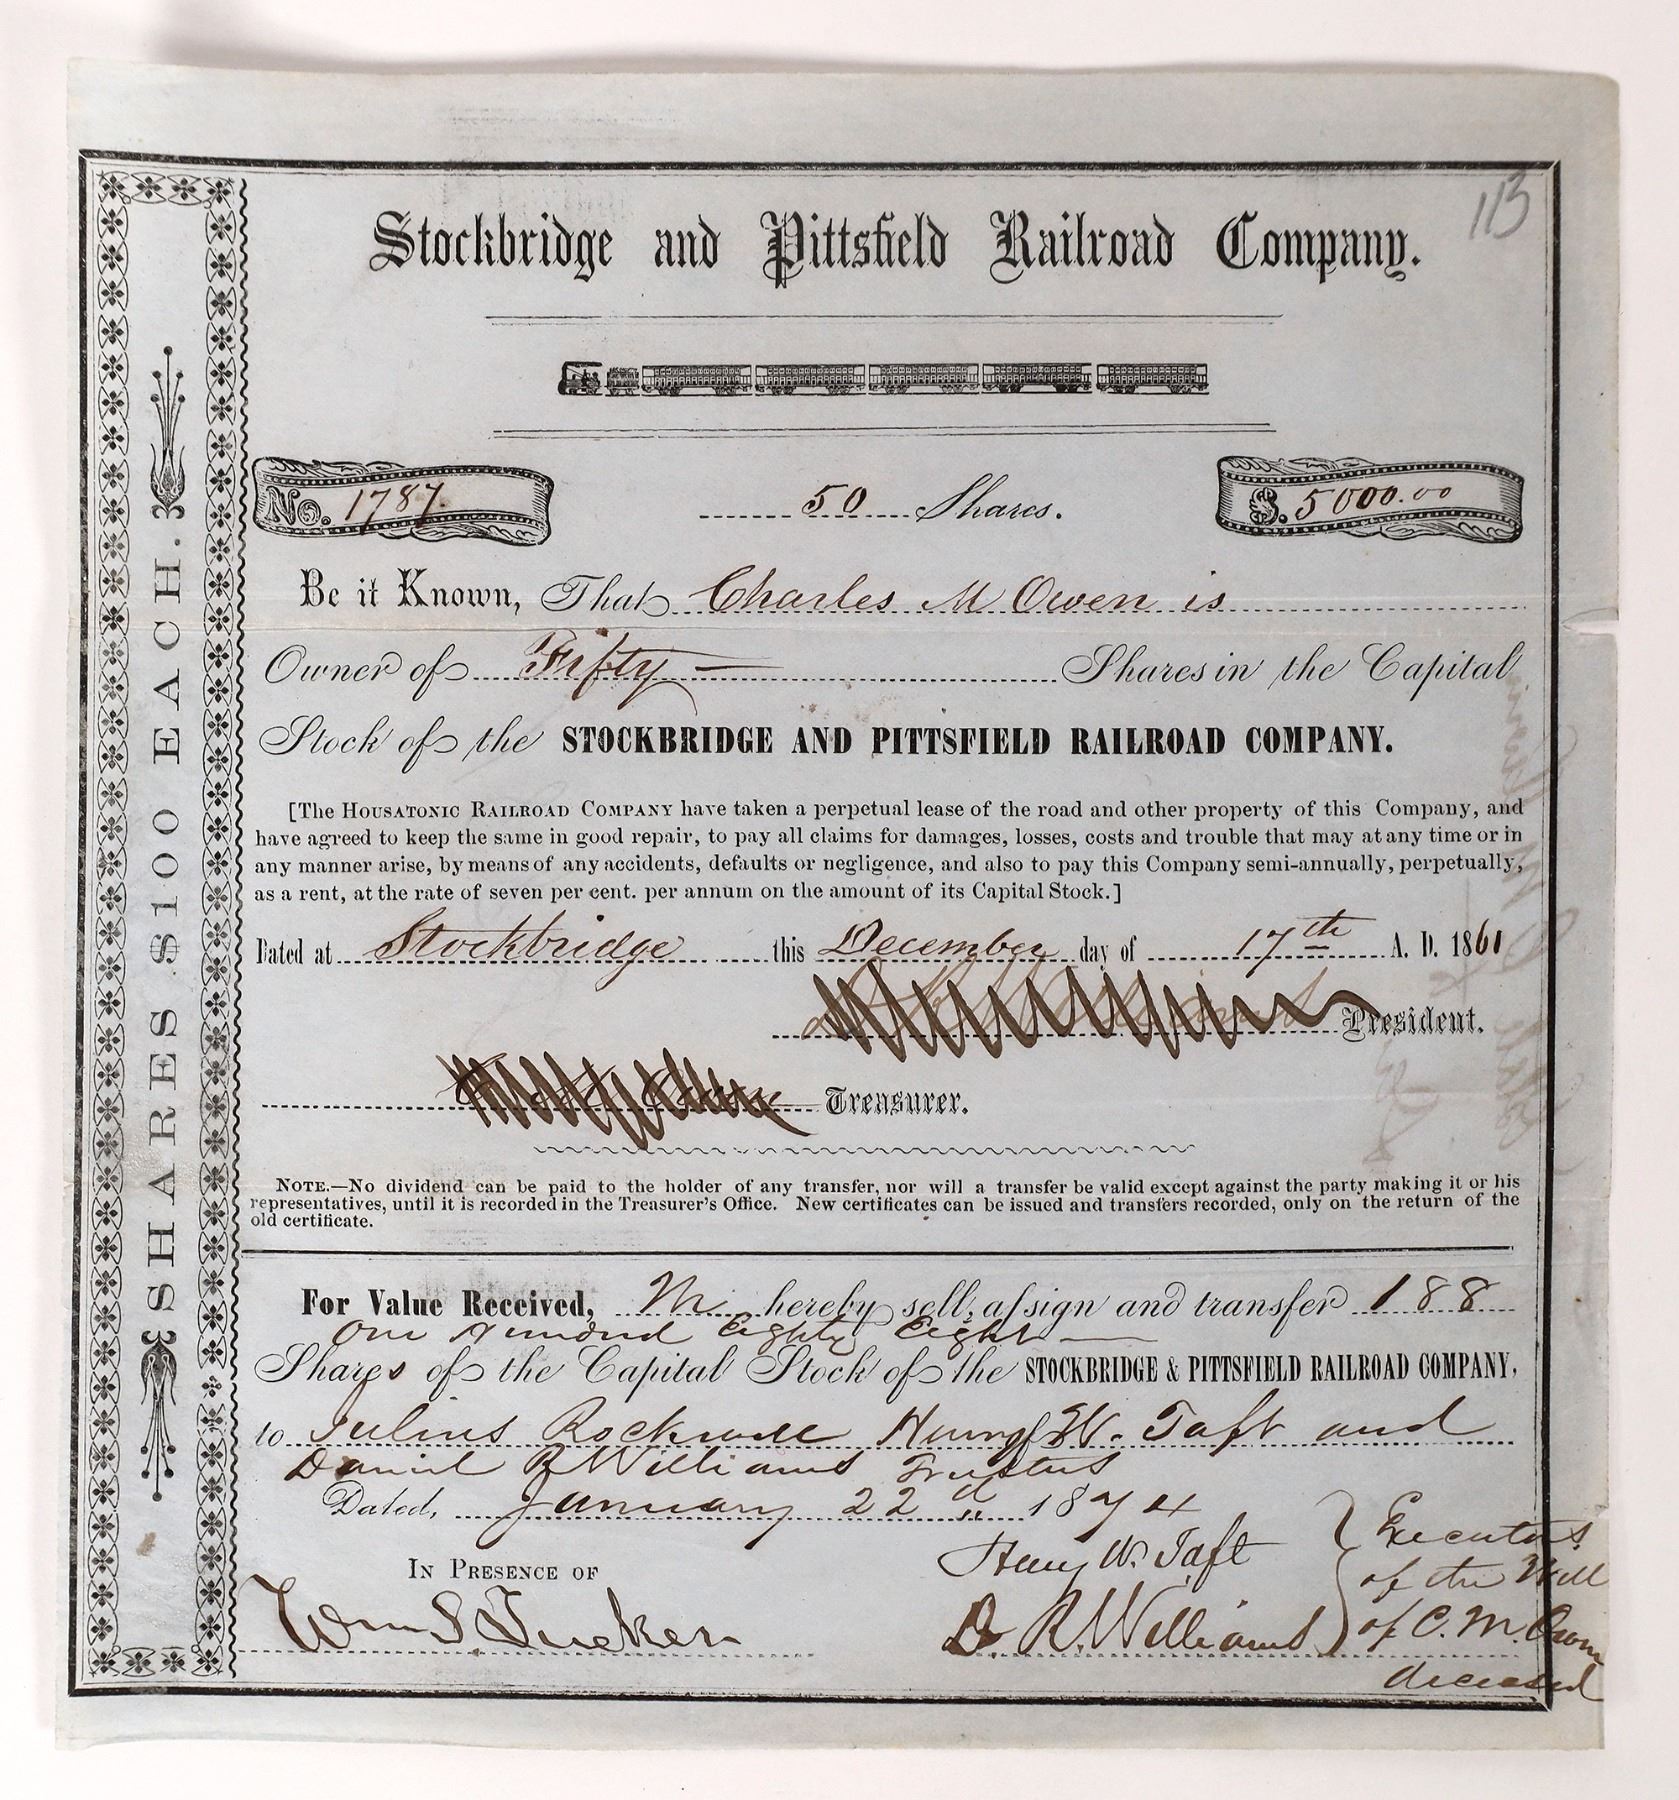 113
Stockbridge and Pittsfield Railroad Company.
No. 1787. 50 Shares. $. 5000.00
Be it Known, That Charles M Owen is
Owner of Fifty — Shares in the Capital
Stock of the STOCKBRIDGE AND PITTSFIELD RAILROAD COMPANY.
[The HOUSATONIC RAILROAD COMPANY have taken a perpetual lease of the road and other property of this Company, and
have agreed to keep the same in good repair, to pay all claims for damages, losses, costs and trouble that may at any time or in
any manner arise, by means of any accidents, defaults or negligence, and also to pay this Company semi-annually, perpetually,
as a rent, at the rate of seven per cent. per annum on the amount of its Capital Stock.]
Dated at Stockbridge this December day of 17th A. D. 1861
President.
Treasurer.
NOTE.—No dividend can be paid to the holder of any transfer, nor will a transfer be valid except against the party making it or his
representatives, until it is recorded in the Treasurer's Office. New certificates can be issued and transfers recorded, only on the return of the
old certificate.
For Value Received, hereby sell, assign and transfer 188
One Hundred Eighty Eight —
Shares of the Capital Stock of the STOCKBRIDGE & PITTSFIELD RAILROAD COMPANY,
to Julius Rockwell Henry W. Taft and
Daniel R Williams Trustees
Dated, January 22d 1874
IN PRESENCE OF
Wm S. Tucker
Henry W. Taft
D. R. Williams
Executors
of the Will
of C. M. Owen
deceased
SHARES $100 EACH.